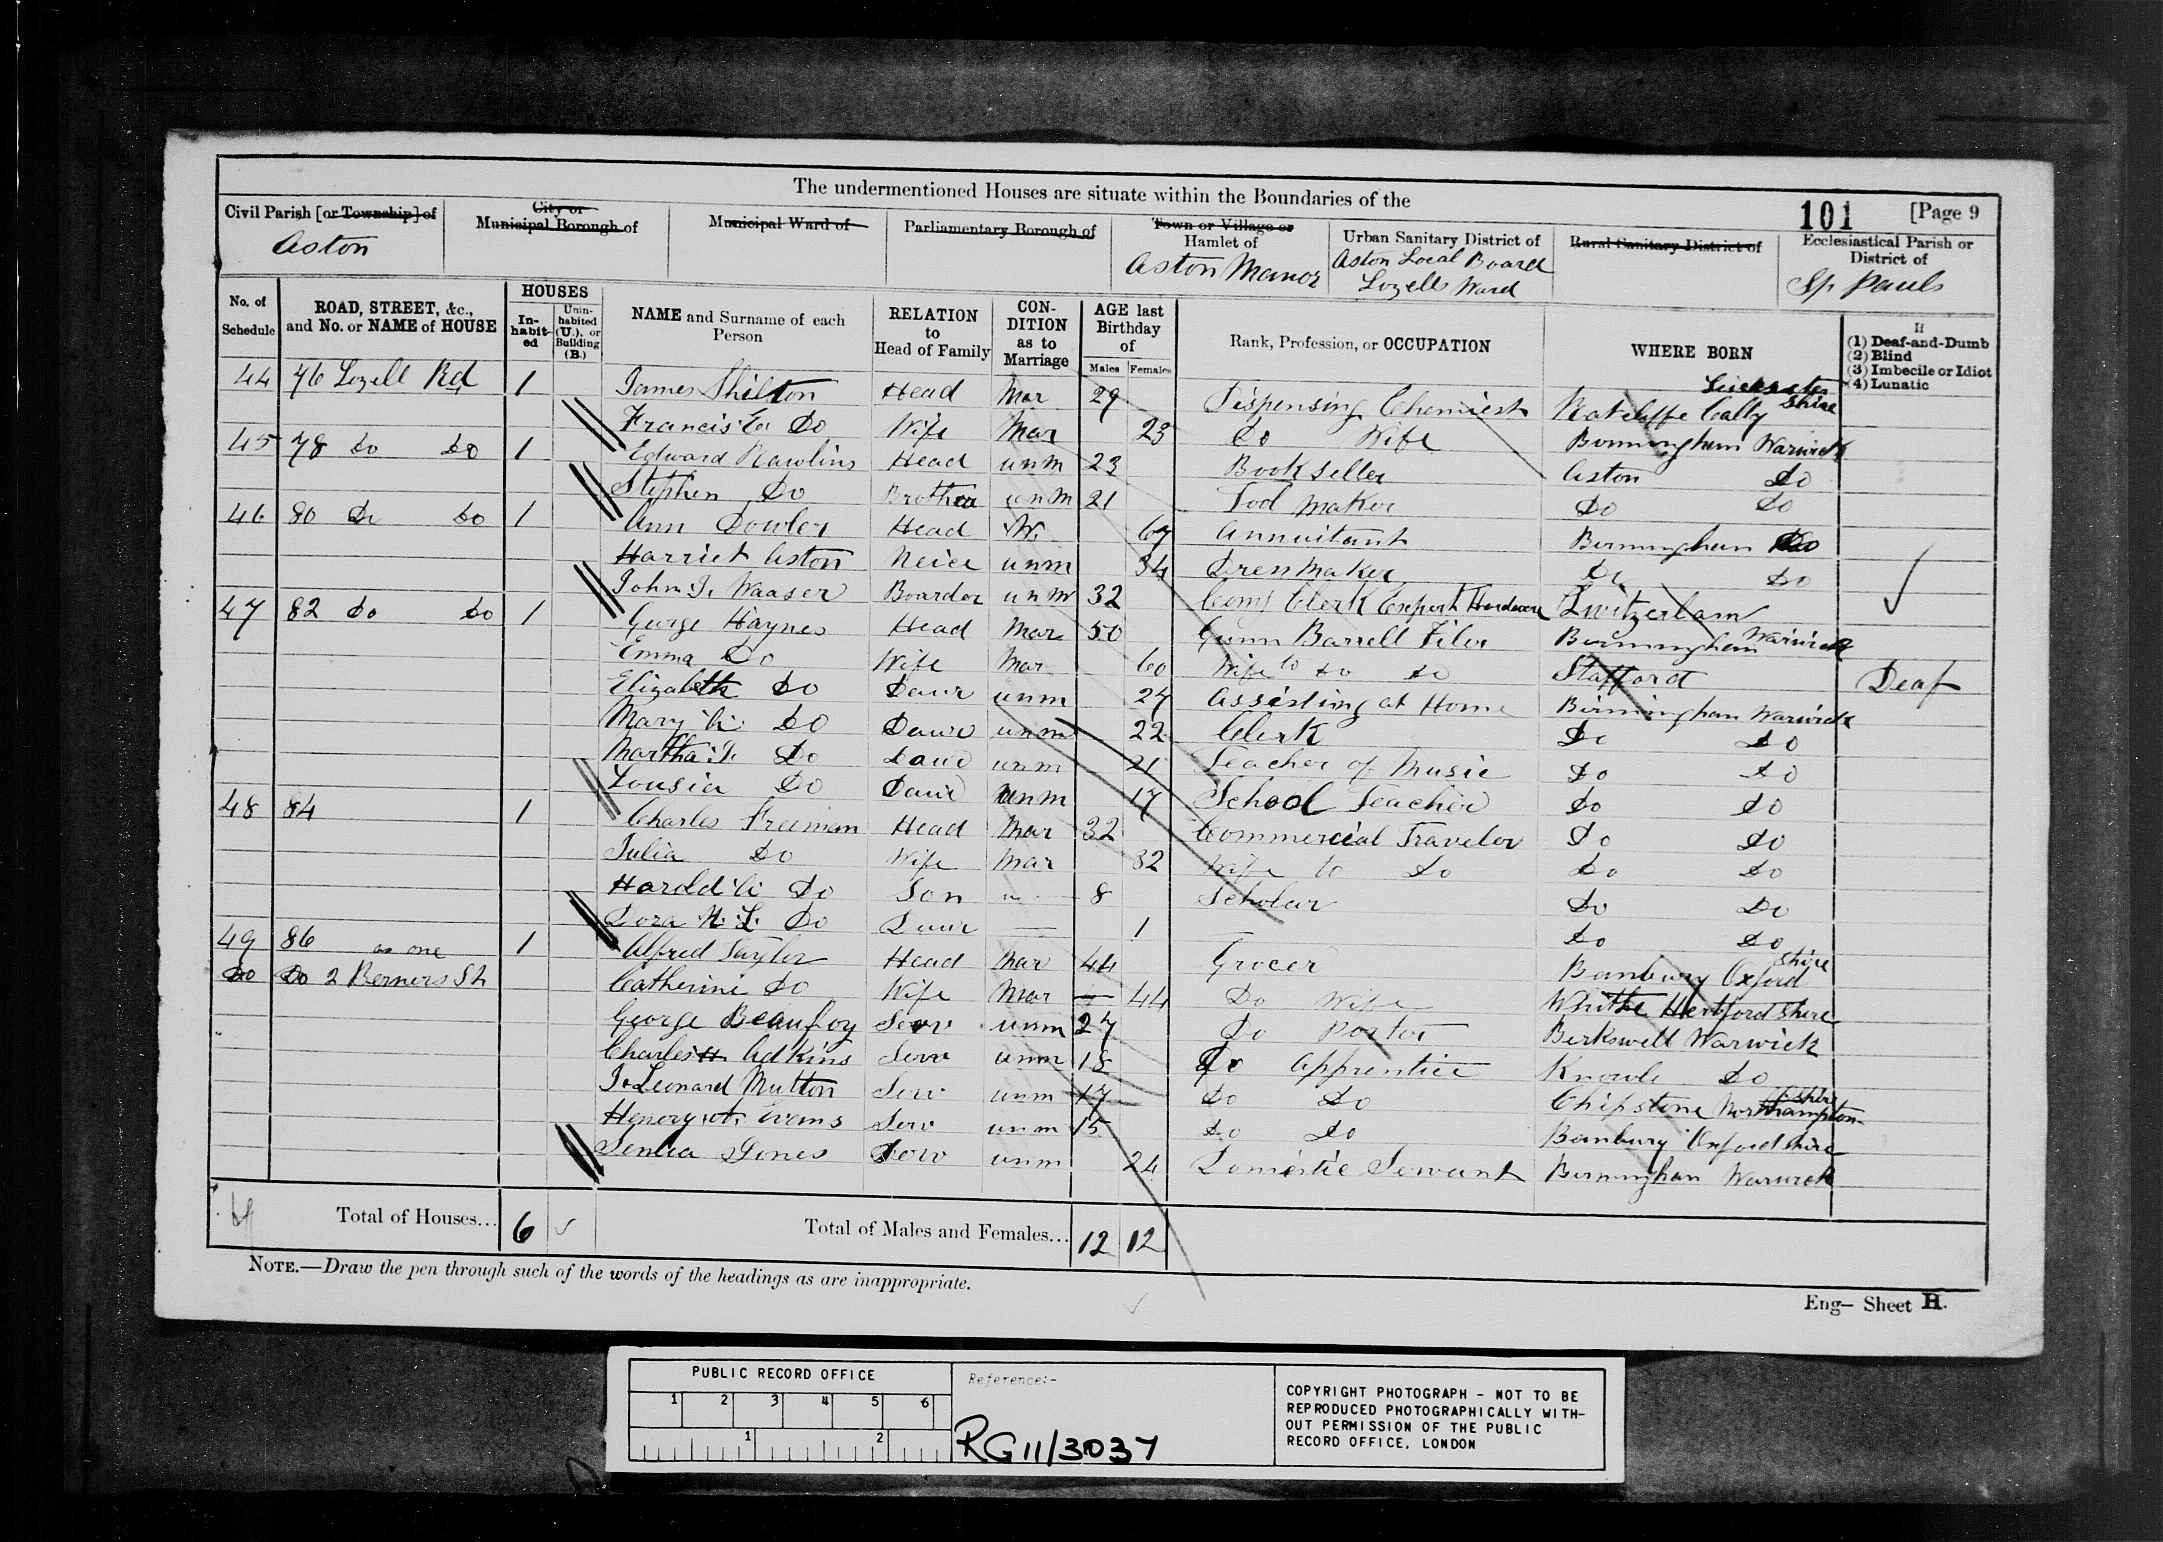 The undermentioned Houses are situate within the Boundaries of the
101 [Page 9
Civil Parish [or Township] of
Aston
City or
Municipal Borough of
Municipal Ward of
Parliamentary Borough of
Town or Village or
Hamlet of
Aston Manor
Urban Sanitary District of
Aston Local Board
Lozells Ward
Rural Sanitary District of
Ecclesiastical Parish or
District of
St. Pauls
No. of Schedule
ROAD, STREET, &c., and No. or NAME of HOUSE
HOUSES
In-habit-ed
Unin-habited (U.), or Building (B.)
NAME and Surname of each Person
RELATION to Head of Family
CON-DITION as to Marriage
AGE last Birthday of
Males Females
Rank, Profession, or OCCUPATION
WHERE BORN
If
(1) Deaf-and-Dumb
(2) Blind
(3) Imbecile or Idiot
(4) Lunatic
44 76 Lozell Rd 1 James Shilton Head Mar 29 Dispensing Chemiest Ratcliffe Leicestershire
Francis E. Do Wife Mar 23 Do Wife Birmingham Warwick
45 78 Do Do 1 Edward Rawlins Head unm 23 Bookseller Aston Do
Stephen Do Brother unm 21 Tool Maker Do Do
46 80 Do Do 1 Ann Dowler Head W. 67 Annuitant Birmingham Do
Harriet Aston Neice unm 34 Dressmaker Do Do
John J. Waaser Boarder unm 32 Comg Clerk Export Hardware Switzerlam
47 82 Do Do 1 George Haynes Head Mar 50 Gunn Barrell Filer Birmingham Warwick
Emma Do Wife Mar 60 Wife to Do Do Stafford Deaf
Elizabeth Do Daur unm 27 Assisting at Home Birmingham Warwick
Mary Do Daur unm 22 Clerk Do Do
Martha J. Do Daur unm 21 Teacher of Music Do Do
Lousia Do Daur unm 17 School Teacher Do Do
48 84 1 Charles Freeman Head Mar 32 Commercial Traveler Do Do
Julia Do Wife Mar 32 Wife to Do Do Do
Harold Do Son 8 Scholar Do Do
Dora H. L. Do Daur — 1 — Do Do
49 86 as one 1 Alfred Taylor Head Mar 44 Grocer Banbury Oxford shire
Do Do 2 Berners St Catherine Do Wife Mar 44 Do Wife Hertfordshire
George Beaufoy Serv unm 27 Do Porter Berkswell Warwick
Charles H Adkins Serv unm 18 Do Apprentice Knowle Do
J. Leonard Mutton Serv unm 17 Do Do Chipstone Northampton shire
Henery Evans Serv unm 15 Do Do Banbury Oxfordshire
Jones Serv unm 24 Domestic Servant Birmingham Warwick
Total of Houses... 6
Total of Males and Females... 12 12
NOTE.—Draw the pen through such of the words of the headings as are inappropriate.
Eng— Sheet H.
PUBLIC RECORD OFFICE
1 2 3 4 5 6
1 2
Reference:-
RG11/3037
COPYRIGHT PHOTOGRAPH - NOT TO BE
REPRODUCED PHOTOGRAPHICALLY WITH-
OUT PERMISSION OF THE PUBLIC
RECORD OFFICE, LONDON